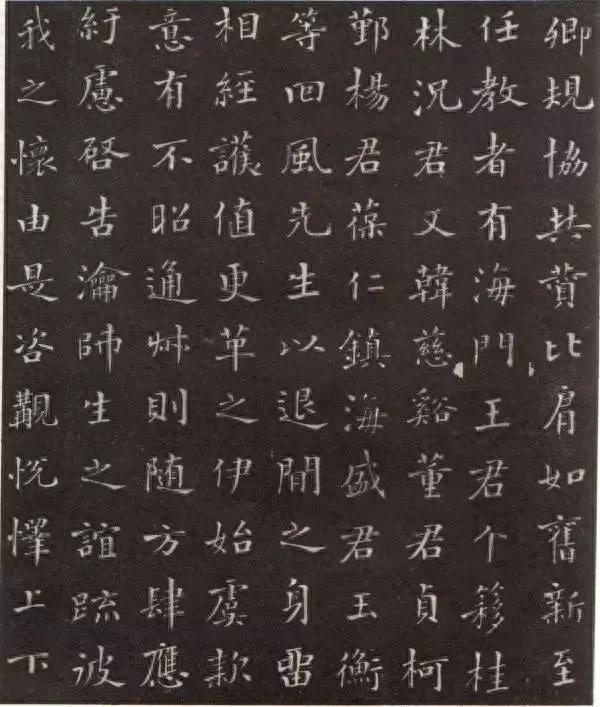 卿規協共贊比肩如舊新至
任教者有海門王君个簃桂
林況君又韓慈谿董君貞柯
鄞楊君葆仁鎮海盛君玉衡
等回風先生以退閒之身畱
相經護值更革之伊始虞款
意有不昭通妳則随方肆應
紆慮啓告瀹師生之誼疏彼
我之懷由是咨觀悅懌上下